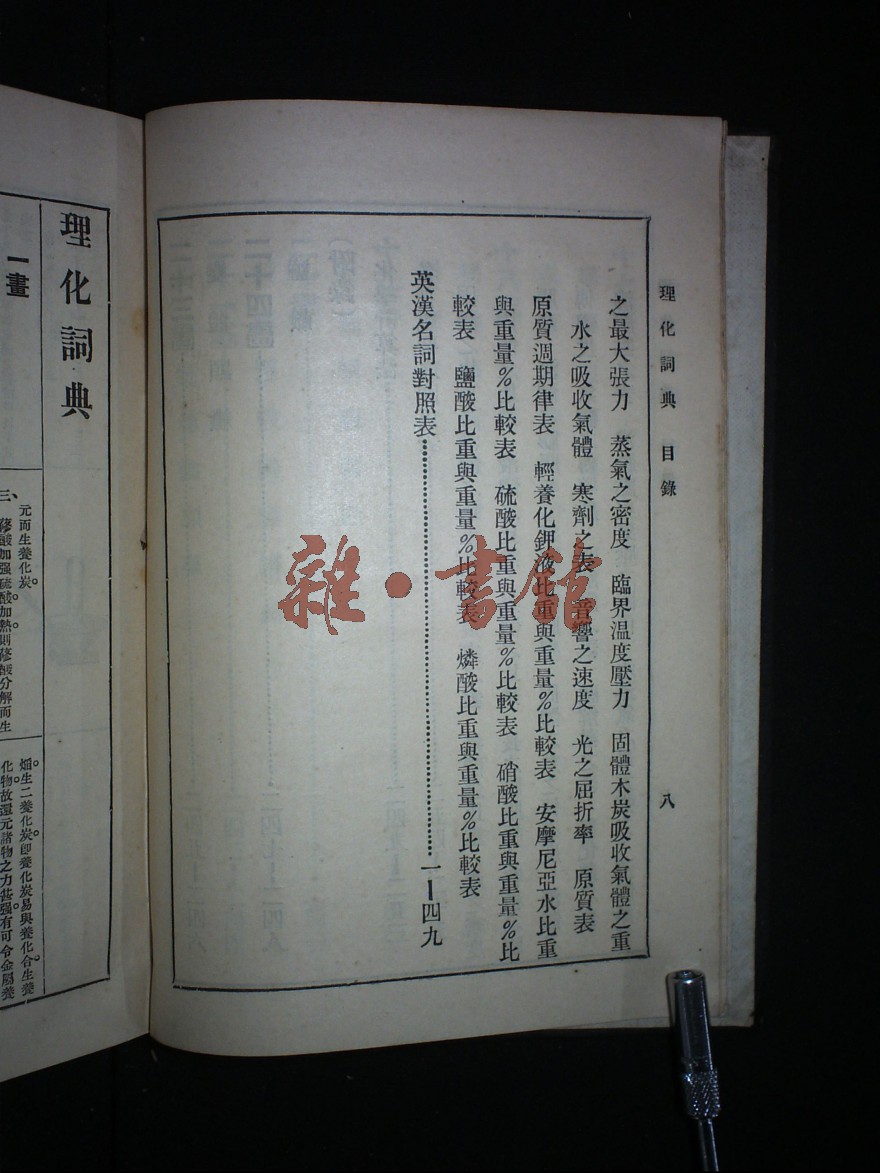 理化詞典 目錄 八
之最大張力 蒸氣之密度 臨界溫度壓力 固體木炭吸收氣體之重
水之吸收氣體 寒劑之表 音響之速度 光之屈折率 原質表
原質週期律表 輕養化鉀液比重與重量%比較表 安摩尼亞水比重
與重量%比較表 硫酸比重與重量%比較表 硝酸比重與重量%比
較表 鹽酸比重與重量%比較表 燐酸比重與重量%比較表
英漢名詞對照表……一—四九
雜·書館
理化詞典
一畫
元而生養化炭。
三、蓚酸加强硫酸加熱。則蓚酸分解而生
烟。生二養化炭。即養化炭易與養化合生養
化物。故還元諸物之力甚强。有可令金屬養